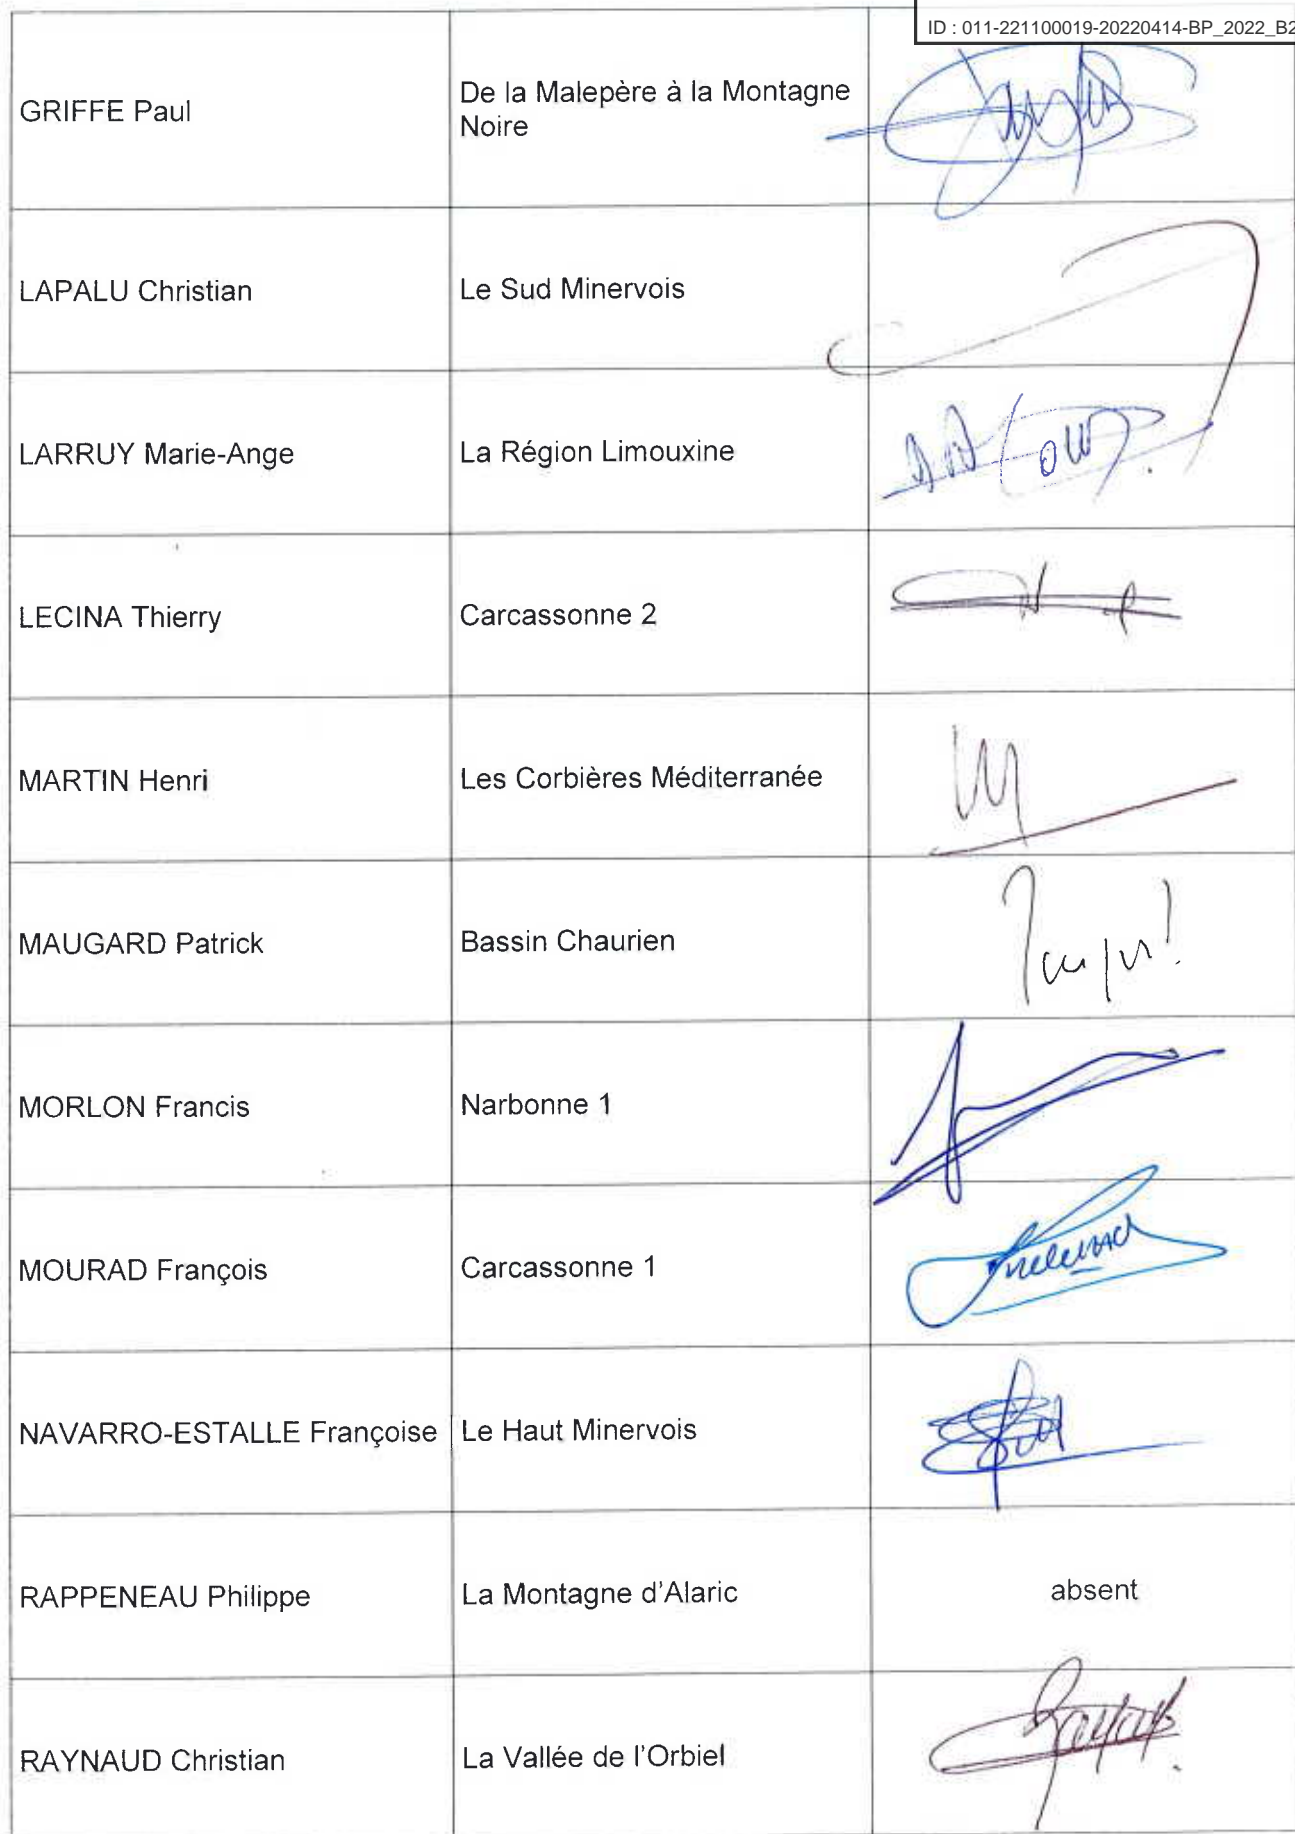 ID : 011-221100019-20220414-BP_2022_B2
GRIFFE Paul
De la Malepère à la Montagne
Noire
LAPALU Christian
Le Sud Minervois
LARRUY Marie-Ange
La Région Limouxine
LECINA Thierry
Carcassonne 2
MARTIN Henri
Les Corbières Méditerranée
MAUGARD Patrick
Bassin Chaurien
MORLON Francis
Narbonne 1
MOURAD François
Carcassonne 1
NAVARRO-ESTALLE Françoise
Le Haut Minervois
RAPPENEAU Philippe
La Montagne d'Alaric
absent
RAYNAUD Christian
La Vallée de l'Orbiel